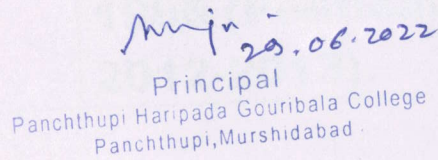 29.06.2022
Principal
Panchthupi Haripada Gouribala College
Panchthupi,Murshidabad